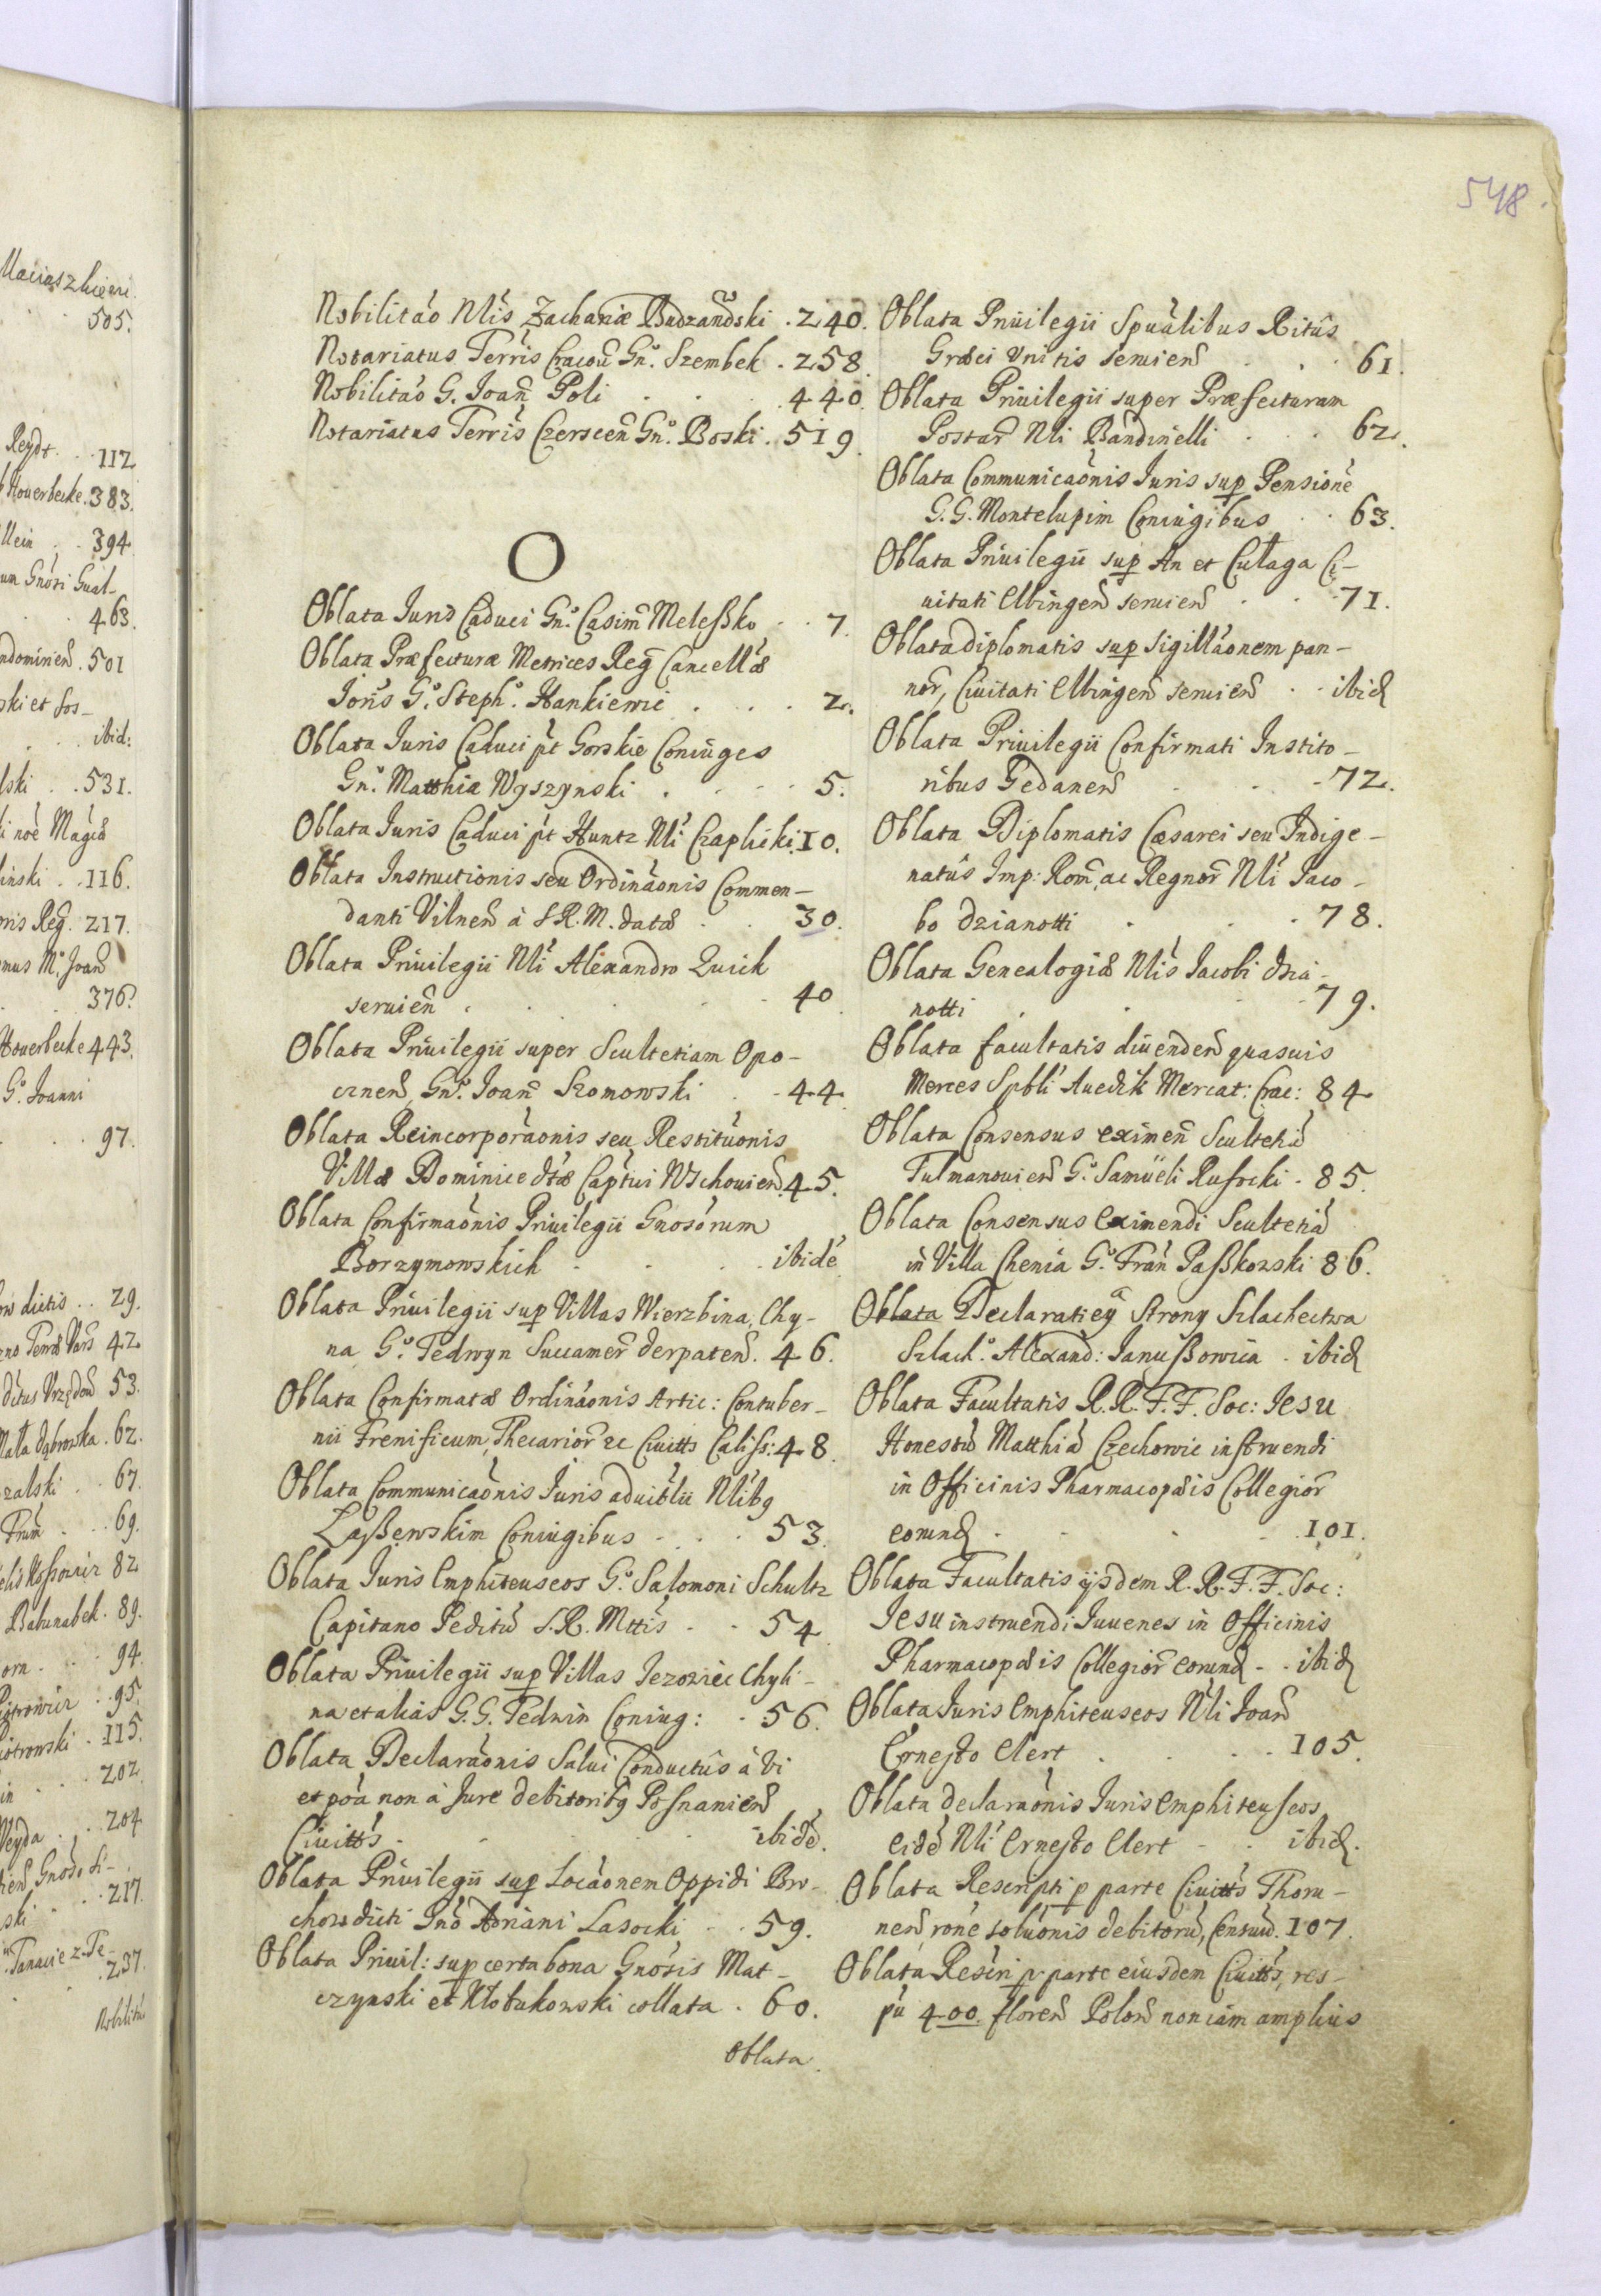 548.
Nobilitáo Nlis Zachariæ Budzandski . 240.
Notariatus Terris Cracoū Gn̊. Szembek . 258.
Nobilitáo G. Joan̄ Poli . . . 440.
Notariatus Terris Czerscen̄ Gn̊. Boski . 519.
O
Oblata Juris Caduci Gn̊. Casim̄ Meleßko . . 7.
Oblata Præfecturæ Metrices Reg̃ Cancellæ
Joris G̊. Steph̊. Hankiewic . . . 2.
Oblata Juris Caduci pt Gorskie Coniuges
Gn̊. Matthiæ Wyszynski . . . 5.
Oblata Juris Caduci pt Huntz Nli Czaplicki . 10.
Oblata Instructionis seu Ordináonis Commen-
danti Vilnen̄ à S.R.M. datæ . . 30.
Oblata Priuilegii Nli Alexandro Quick
seruien̄ . . . 40
Oblata Priuilegii super Scultetiam Opo-
cznen̄, Gn̊. Joan̄ Szomowski . . 44.
Oblata Reincorporaónis seu Restituónis
Villæ Dominice dtæ Capt̄ui Wschouien̄ . 45.
Oblata Confirmaónis Priuilegii Gnosórum
Borzymowskich . . . ibidé
Oblata Priuilegii sup Villas Wierzbina, Chy-
na G̊. Tedwyn Succamer̄ derpaten̄ . 46.
Oblata Confirmatæ Ordináonis Artic: Contuber-
nii Frenificum, Thecarior̄ &c Ciuitts Caliss: 48.
Oblata Communicaónis Juris aduitlii Nlibg
Laßewskim Coniugibus . . . 53.
Oblata Juris Emphiteuseos G̊. Salomoni Schultz
Capitano Peditū S.R. Mttis . . 54
Oblata Priuilegii sup Villas Jezoziec Chyli-
na et alias G.G. Tedwin Coniug: . 56.
Oblata Declaraónis Salui Conductûs à Vi
et poá non à Jure debitoribg Posnanien̄
Ciuitts . . . ibidē.
Oblata Priuilegii sup Locáonem Oppidi Bro-
chow dicti Gnō Adriani Lasocki . . 59.
Oblata Priuil: sup certa bona Gnosis Mat-
czynski et Kłobukowski collata . 60.
Oblata
Oblata Priuilegii Spuálibus Ritûs
Græci Vnitis seruien̄ . . 61.
Oblata Priuilegii super Præfecturam
Postar̄ Nli Bandinelli . . . 62.
Oblata Communicaónis Juris sup Pensioné
G.G. Montelupim Coniugibus . . 63.
Oblata Priuilegii sup An et Cułaga Ci-
uitati Elbingen̄ seruien̄ . . . 71.
Oblata diplomatis sup sigilláonem pan-
nor̄, Ciuitati Elbingen̄ seruien̄ . . ibid
Oblata Priuilegii Confirmati Instito-
ribus Gedanen̄ . . . 72.
Oblata Diplomatis Cæsarei seu Indige-
natûs Imp: Rom̄, ac Regnor̄ Nli Jaco-
bo dzianotti . . . 78.
Oblata Genealogiæ Nlis Jacobi dzia-
notti . . . 79.
Oblata facultatis diuenden̄ quasuis
Merces Sptbli Auedik Mercat: Crac: 84
Oblata Consensus eximen̄ Scultetiā
Tulmanouien̄ G̊. Samüeli Rusocki . 85.
Oblata Consensus Eximendi Scultetiā
in Villa Chenia G̊. Fran̄ Paßkowski 86.
Oblata Declaratiey Strony Szlachectwa
Szlach̊. Alexand: Janußowicza . ibid
Oblata Facultatis R.R.F.F. Soc: Jesu
Honestū Matthiā Czechowic instruendi
in Officinis Pharmacopæis Collegior̄
eorund . . . 101.
Oblata Facultatis ijsdem R.R.F.F. Soc:
Jesu instruendi Juuenes in Officinis
Pharmacopæis Collegior̄ eorund . . ibid
Oblata Juris Emphiteuseos Nli Joan̄
Ernesto Elert . . . 105.
Oblata declaraónis Juris Emphiteuseos
Eidé Nli Ernesto Elert . . ibid.
Oblata Rescripti p parte Ciuitts Thoru-
nen̄, roné soluónis debitorū, Censuū . 107.
Oblata Rescri p parte eiusdem Ciuitts, res-
pū 400. floren̄ Polon̄ non iám amplius
505.
Reydt . . 112
Houerbecke . 383.
394
463.
501
ibid:
531.
116.
Reg̃. 217.
376
Houerbecke 443.
G̊. Joanni
97.
dictis . . 29.
42
53.
dąbrowska . 62.
67.
69.
82
Babunabek . 89.
94.
95.
115.
202.
204
217.
237.